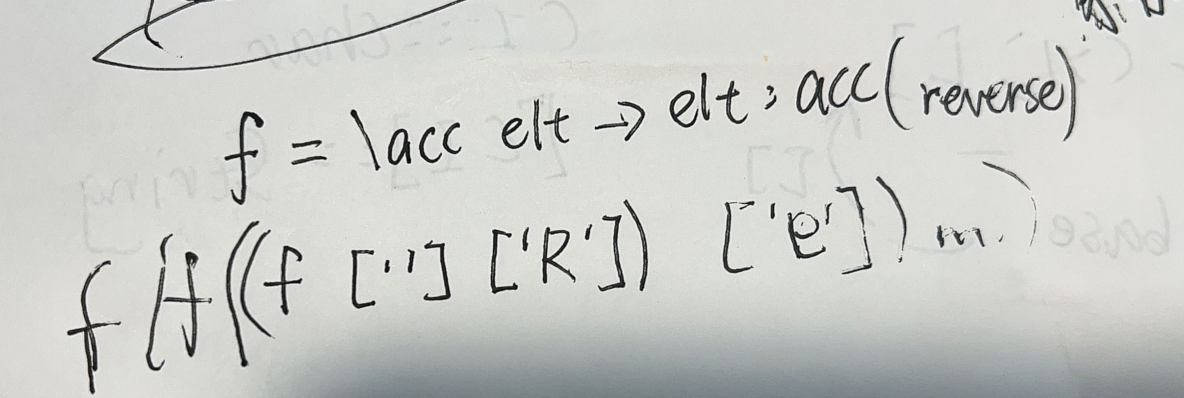 f = \acc elt → elt : acc (reverse)
f (f ((f [''] ['R']) ['e']) m.)